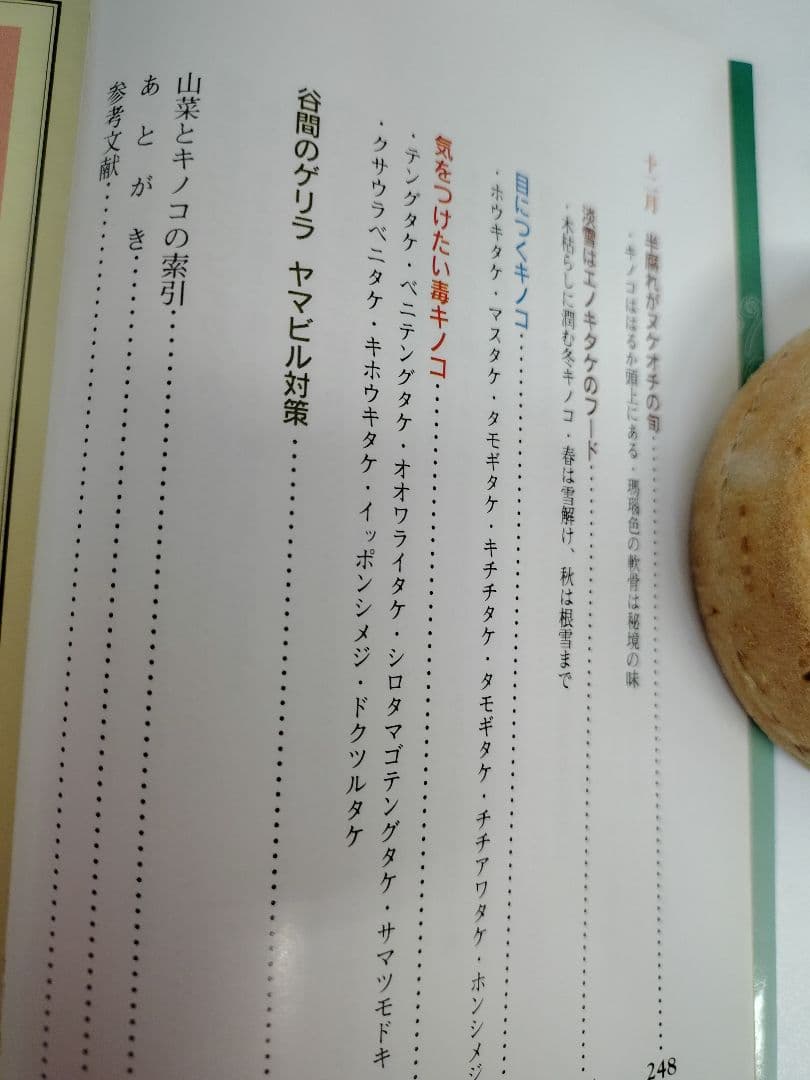 十二月 半腐れがヌケオチの旬
・キノコははるか頭上にある・瑪瑙色の軟骨は秘境の味
248
淡雪はエノキタケのフード
・木枯らしに潤む冬キノコ・春は雪解け、秋は根雪まで
目につくキノコ
・ホウキタケ・マスタケ・タモギタケ・キチチタケ・タモギタケ・チチアワタケ・ホンシメジ
気をつけたい毒キノコ
・テングタケ・ベニテングタケ・オオワライタケ・シロタマゴテングタケ・サマツモドキ
・クサウラベニタケ・キホウキタケ・イッポンシメジ・ドクツルタケ
谷間のゲリラ ヤマビル対策
山菜とキノコの索引
あとがき
参考文献